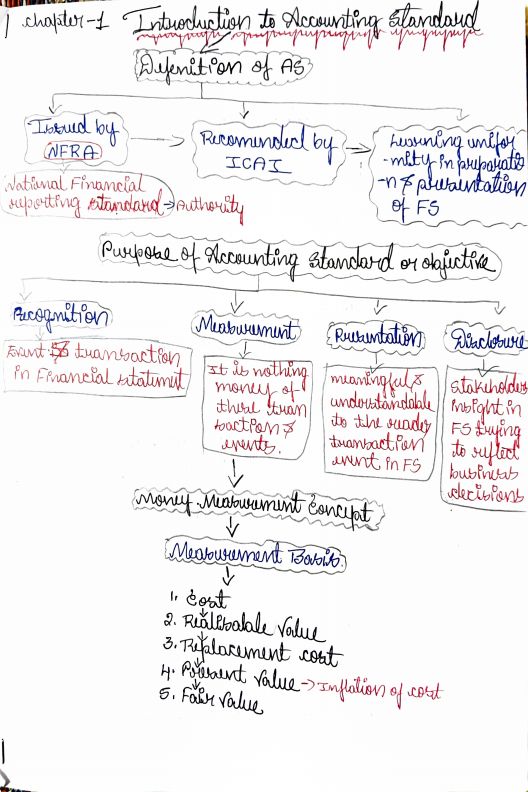 chapter-1 Introduction to Accounting Standard
Definition of AS
Issued by
NFRA
Recomended by
ICAI
Learning unifor
-mity in preparatio
-n & presentation
of FS
National Financial
reporting standard → Authority
Purpose of Accounting Standard or objective
Recognition
Measurement
Presentation
Disclosure
Event & transaction
in Financial statement
It is nothing
money of
there tran
saction &
events.
meaningful &
understandable
to the reader
transaction
event in FS
Stakeholder
insight in
FS trying
to reflect
business
decisions
Money Measurement Concept
Measurement Basis.
1. Cost
2. Realisable Value
3. Replacement cost
4. Present Value → Inflation of cost
5. Fair Value